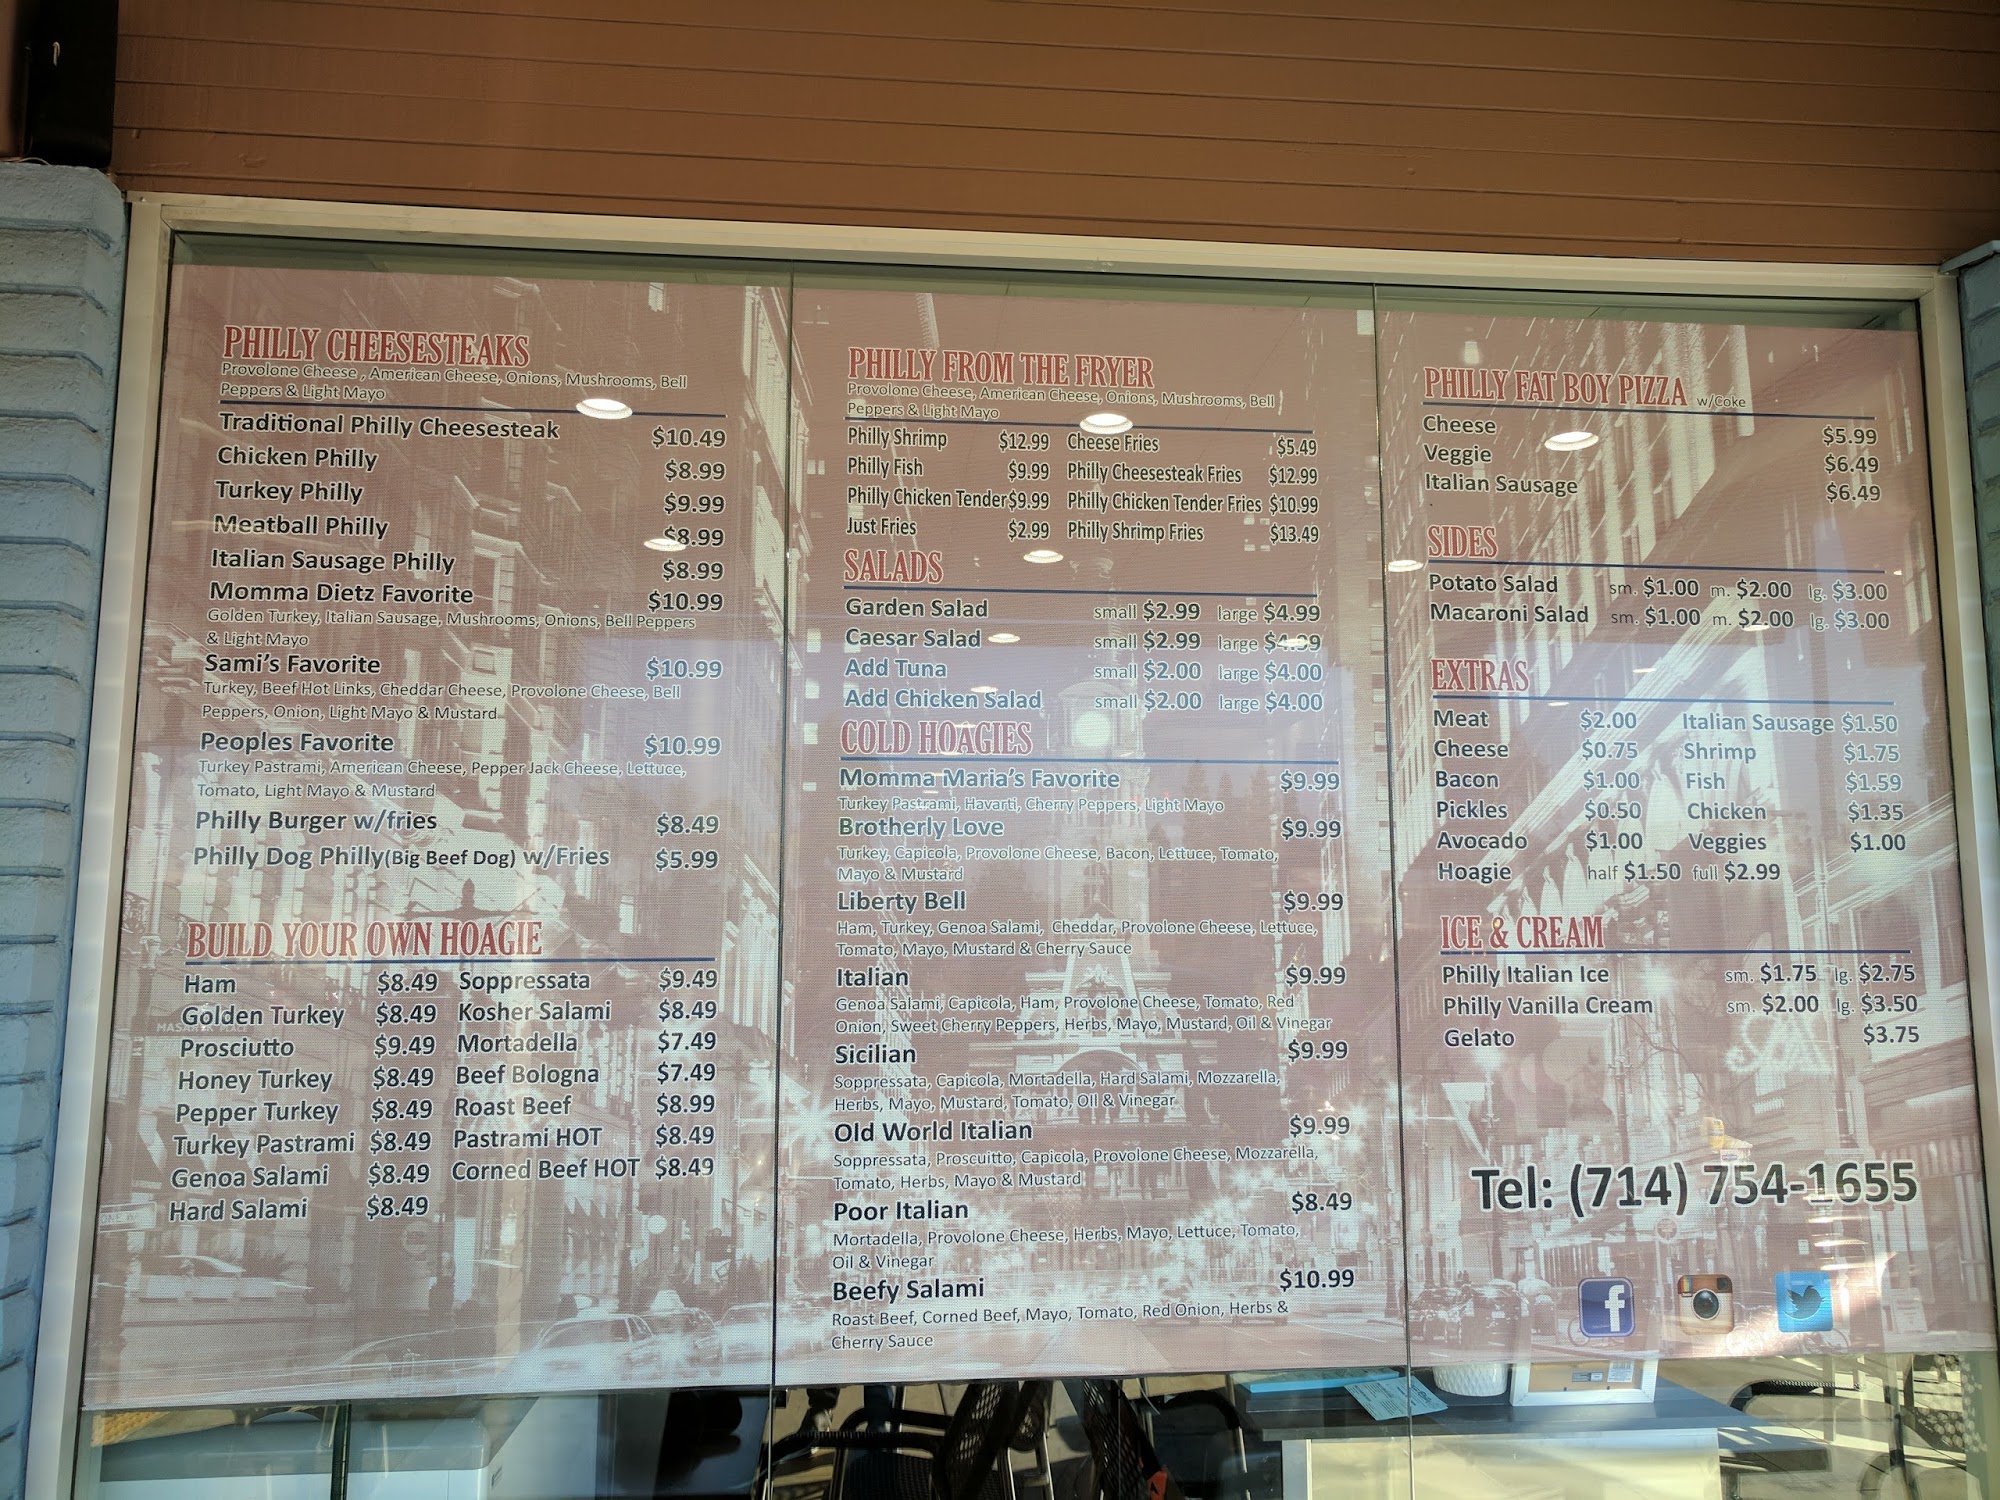 PHILLY CHEESESTEAKS
Provolone Cheese , American Cheese, Onions, Mushrooms, Bell
Peppers & Light Mayo
Traditional Philly Cheesesteak $10.49
Chicken Philly $8.99
Turkey Philly $9.99
Meatball Philly $8.99
Italian Sausage Philly $8.99
Momma Dietz Favorite $10.99
Golden Turkey, Italian Sausage, Mushrooms, Onions, Bell Peppers
& Light Mayo
Sami's Favorite $10.99
Turkey, Beef Hot Links, Cheddar Cheese, Provolone Cheese, Bell
Peppers, Onion, Light Mayo & Mustard
Peoples Favorite $10.99
Turkey Pastrami, American Cheese, Pepper Jack Cheese, Lettuce,
Tomato, Light Mayo & Mustard
Philly Burger w/fries $8.49
Philly Dog Philly(Big Beef Dog) w/Fries $5.99
BUILD YOUR OWN HOAGIE
Ham $8.49 Soppressata $9.49
Golden Turkey $8.49 Kosher Salami $8.49
Prosciutto $9.49 Mortadella $7.49
Honey Turkey $8.49 Beef Bologna $7.49
Pepper Turkey $8.49 Roast Beef $8.99
Turkey Pastrami $8.49 Pastrami HOT $8.49
Genoa Salami $8.49 Corned Beef HOT $8.49
Hard Salami $8.49
PHILLY FROM THE FRYER
Provolone Cheese, American Cheese, Onions, Mushrooms, Bell
Peppers & Light Mayo
Philly Shrimp $12.99 Cheese Fries $5.49
Philly Fish $9.99 Philly Cheesesteak Fries $12.99
Philly Chicken Tender $9.99 Philly Chicken Tender Fries $10.99
Just Fries $2.99 Philly Shrimp Fries $13.49
SALADS
Garden Salad small $2.99 large $4.99
Caesar Salad small $2.99 large $4.99
Add Tuna small $2.00 large $4.00
Add Chicken Salad small $2.00 large $4.00
COLD HOAGIES
Momma Maria's Favorite $9.99
Turkey Pastrami, Havarti, Cherry Peppers, Light Mayo
Brotherly Love $9.99
Turkey, Capicola, Provolone Cheese, Bacon, Lettuce, Tomato,
Mayo & Mustard
Liberty Bell $9.99
Ham, Turkey, Genoa Salami, Cheddar, Provolone Cheese, Lettuce,
Tomato, Mayo, Mustard & Cherry Sauce
Italian $9.99
Genoa Salami, Capicola, Ham, Provolone Cheese, Tomato, Red
Onion, Sweet Cherry Peppers, Herbs, Mayo, Mustard, Oil & Vinegar
Sicilian $9.99
Soppressata, Capicola, Mortadella, Hard Salami, Mozzarella,
Herbs, Mayo, Mustard, Tomato, OIl & Vinegar
Old World Italian $9.99
Soppressata, Proscuitto, Capicola, Provolone Cheese, Mozzarella,
Tomato, Herbs, Mayo & Mustard
Poor Italian $8.49
Mortadella, Provolone Cheese, Herbs, Mayo, Lettuce, Tomato,
Oil & Vinegar
Beefy Salami $10.99
Roast Beef, Corned Beef, Mayo, Tomato, Red Onion, Herbs &
Cherry Sauce
PHILLY FAT BOY PIZZA w/Coke
Cheese $5.99
Veggie $6.49
Italian Sausage $6.49
SIDES
Potato Salad sm. $1.00 m. $2.00 lg. $3.00
Macaroni Salad sm. $1.00 m. $2.00 lg. $3.00
EXTRAS
Meat $2.00 Italian Sausage $1.50
Cheese $0.75 Shrimp $1.75
Bacon $1.00 Fish $1.59
Pickles $0.50 Chicken $1.35
Avocado $1.00 Veggies $1.00
Hoagie half $1.50 full $2.99
ICE & CREAM
Philly Italian Ice sm. $1.75 lg. $2.75
Philly Vanilla Cream sm. $2.00 lg. $3.50
Gelato $3.75
Tel: (714) 754-1655